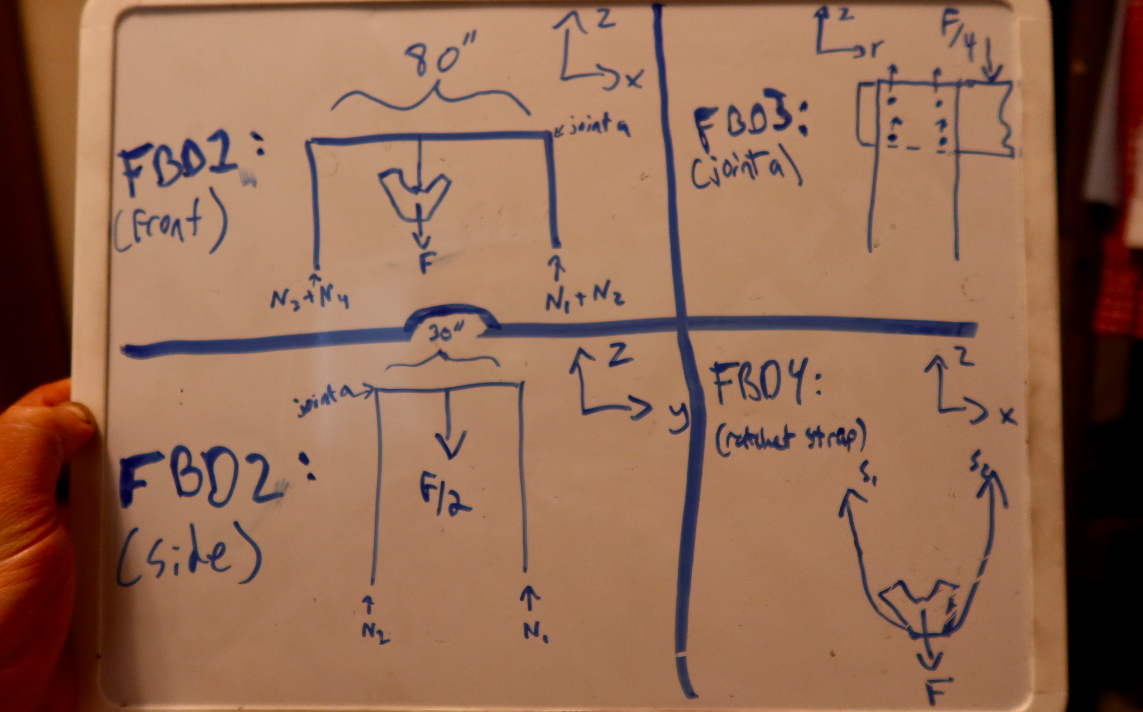 80"
Z
x
FBD1:
(Front)
joint a
F
N3+N4
N1+N2
Z
r
F/4
FBD3:
(joint a)
30"
Z
y
joint a
FBD2:
(side)
F/2
N2
N1
Z
x
FBD4:
(ratchet strap)
S1
S2
F